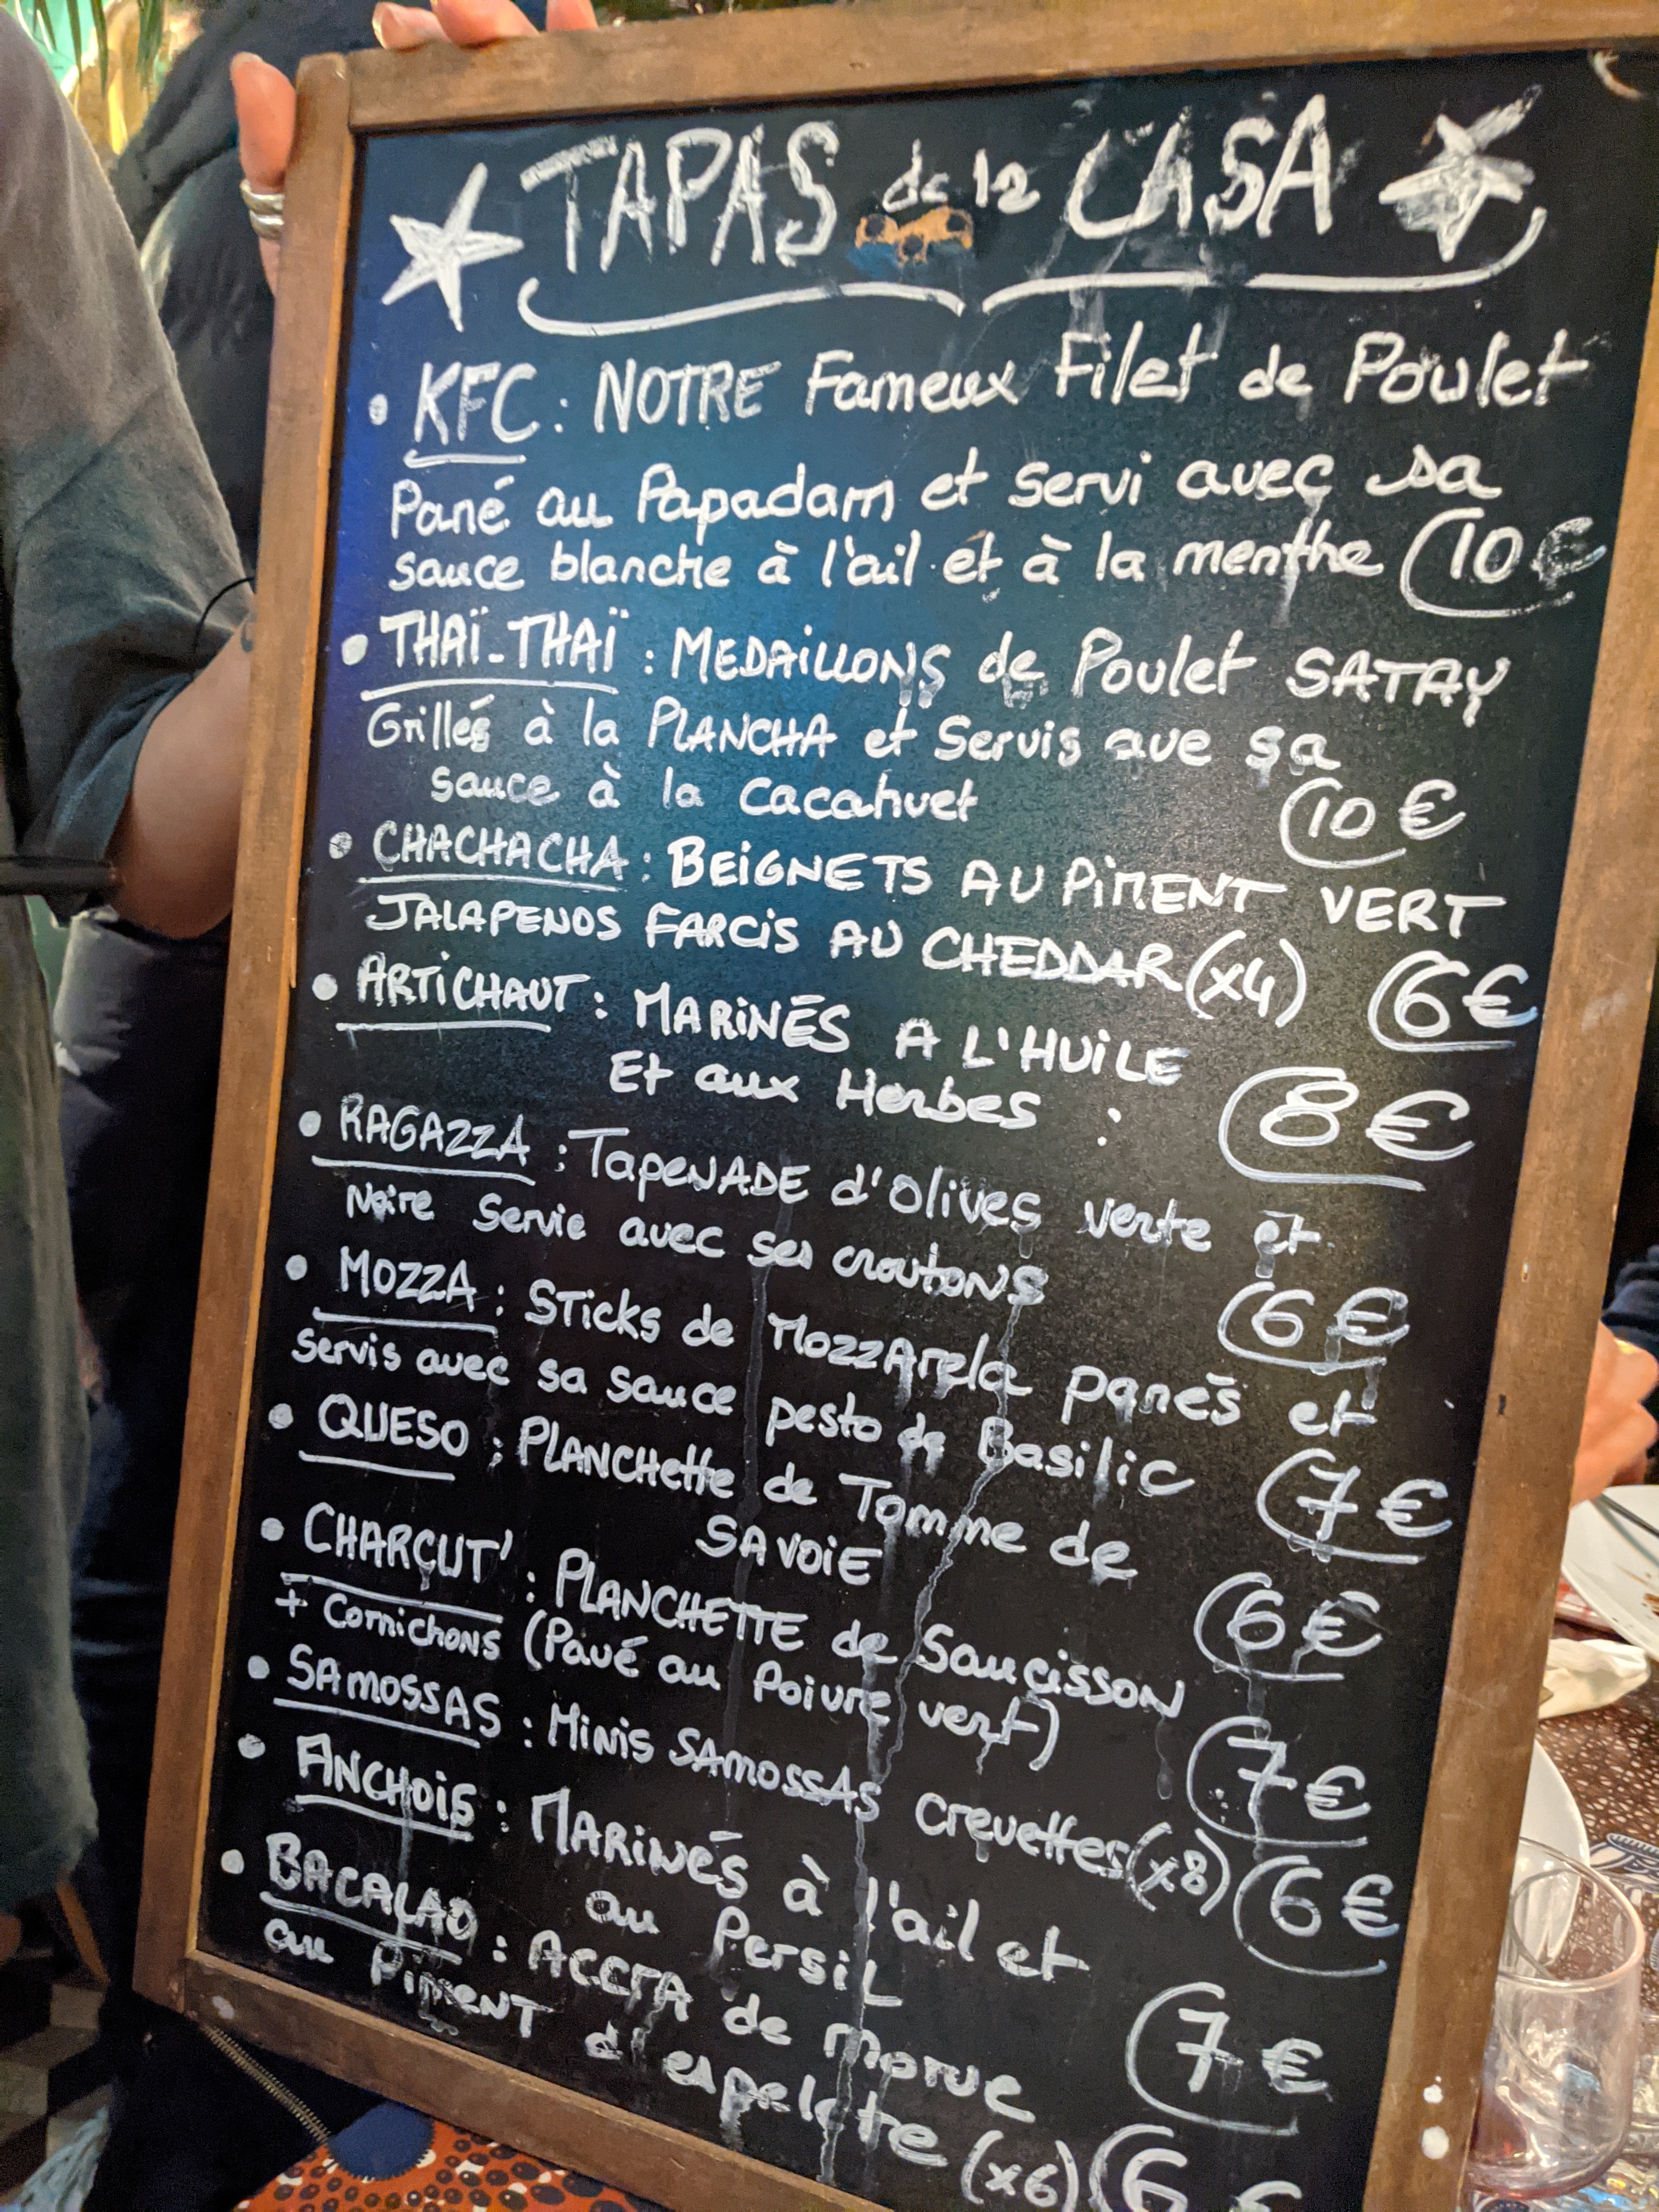 TAPAS de la CASA
• KFC : NOTRE Fameux Filet de Poulet
Pané au Papadam et servi avec sa
sauce blanche à l'ail et à la menthe 10€
• THAÏ-THAÏ : MEDAiLLONS de Poulet SATAY
Grillés à la PLANCHA et Servis ave sa
sauce à la cacahuet 10€
• CHACHACHA : BEiGNETS AU PiMENT VERT
JALAPENOS FARCiS AU CHEDDAR (x4) 6€
• ARTiCHAUT : MARiNÉS A L'HUiLE
Et aux Herbes : 8€
• RAGAZZA : TapeNADE d'Olives verte et
Noire Servie avec ses croutons 6€
• MOZZA : STicks de MozzArela panés et
Servis avec sa sauce pesto de Basilic 7€
• QUESO : PLANCHette de Tomme de
SAVOiE 6€
• CHARCUT' : PLANCHETTE de Saucisson
+ Cornichons (Pavé au Poivre vert) 7€
• SAMOSSAS : Minis SAMOSSAS crevettes (x8) 6€
• ANCHOiS : MARiNÉS à l'ail et
au PersiL 7€
• BACALAO : ACCRA de morue
au PiMENT d'espelette (x6) 6€